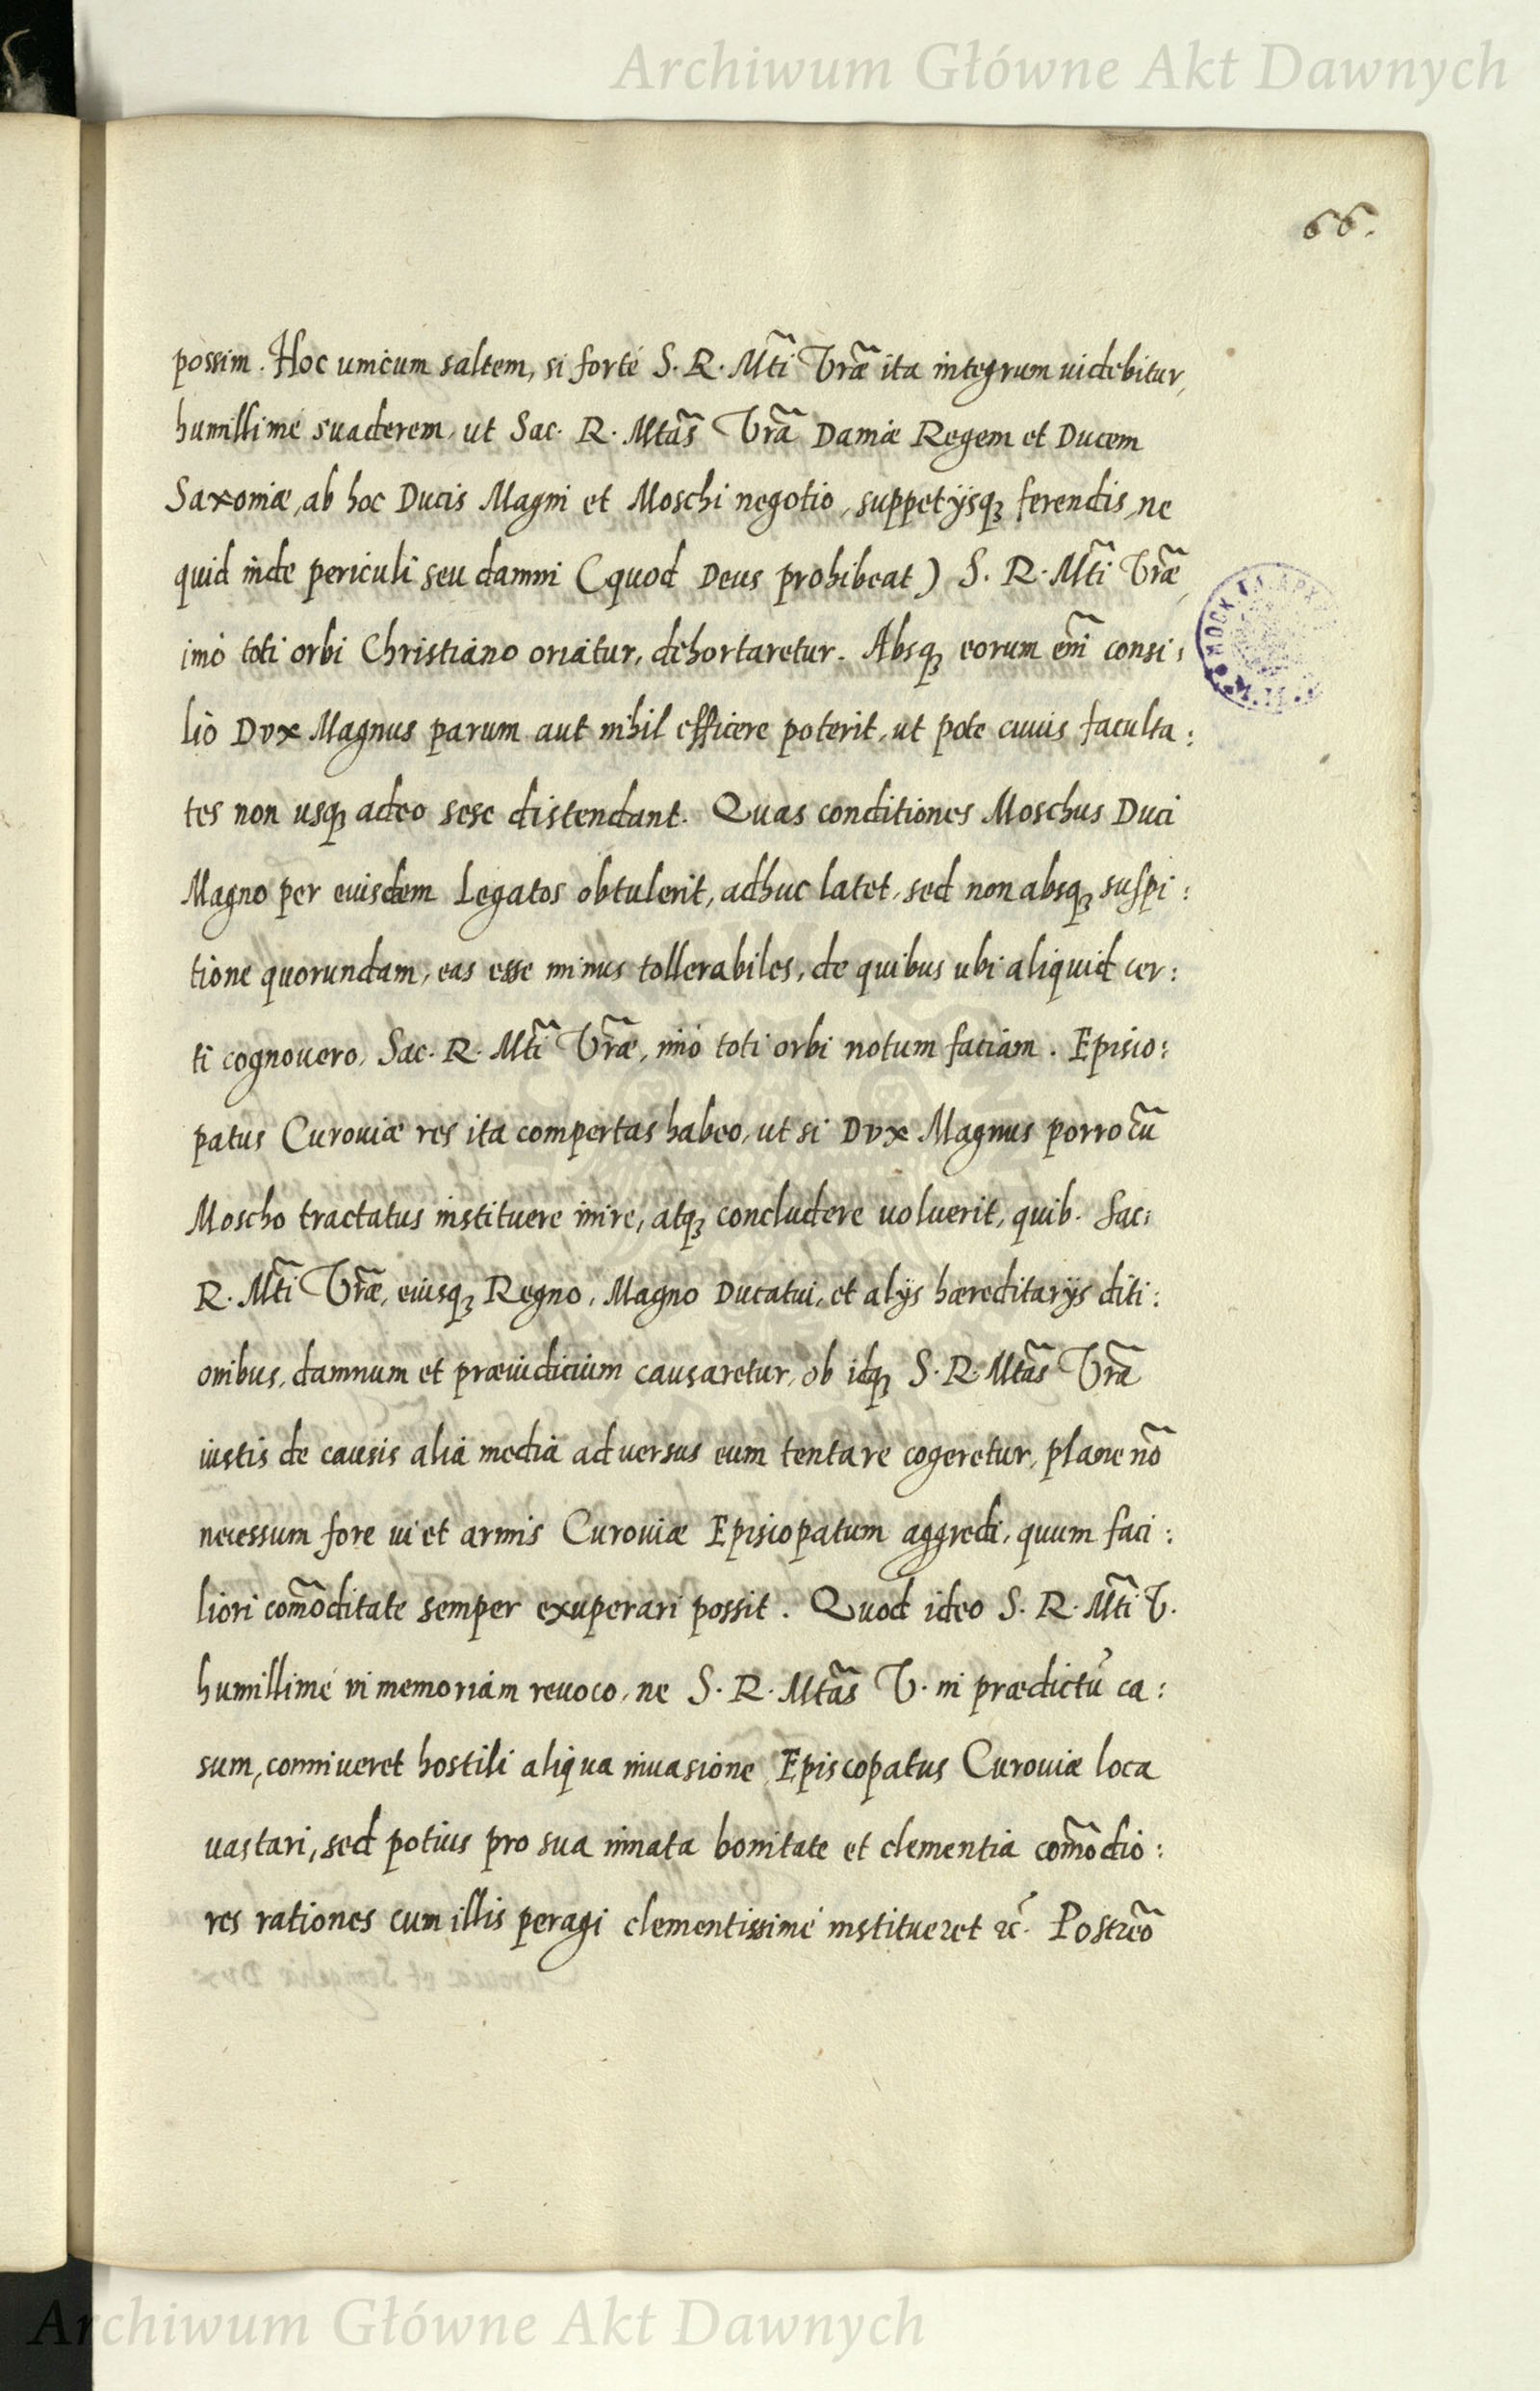 Archiwum Główne Akt Dawnych
66.
possim. Hoc unicum saltem, si forté S. R. Mti Vræ ita integrum uidebitur,
humillimé suaderem, ut Sac. R. Mtas Vra Daniæ Regem et Ducem
Saxoniæ, ab hoc Ducis Magni et Moschi negotio, suppetijsq; ferendis, ne
quid inde periculi seu damni (quod Deus prohibeat) S. R. Mti Vræ,
imò toti orbi Christiano oriatur, dehortaretur. Absq; eorum em̃ consi:
lio Dvx Magnus parum aut nihil efficere poterit, ut pote cuius faculta:
tes non usq; adeo sese distendant. Quas conditiones Moschus Duci
Magno per euisdem Legatos obtulerit, adhuc latet, sed non absq; suspi:
tione quorundam, eas esse minus tollerabiles, de quibus ubi aliquid cer:
ti cognouero, Sac. R. Mti Vræ, imò toti orbi notum faciam. Episco:
patus Curoniæ res ita compertas habeo, ut si Dvx Magnus porro cũ
Moscho tractatus instituere inire, atq; concludere uoluerit, quib. Sac:
R. Mti Vræ, eiusq; Regno, Magno Ducatui, et alijs hæreditarijs diti:
onibus, damnum et præiudicium causaretur, ob idq; S. R. Mtas Vra
iustis de causis alia media aduersus eum tentare cogeretur, plane nõ
necessum fore ui et armis Curoniæ Episcopatum aggredi, quum faci:
liori com̃oditate semper exuperari possit. Quod ideo S. R. Mti V.
humillimé in memoriam reuoco, ne S. R. Mtas V. in prædictũ ca:
sum, conniueret hostili aliqua inuasione, Episcopatus Curoniæ loca
uastari, sed potius pro sua innata bonitate et clementia com̃odio:
res rationes cum illis peragi clementissimé institueret &c. Postremo
Archiwum Główne Akt Dawnych